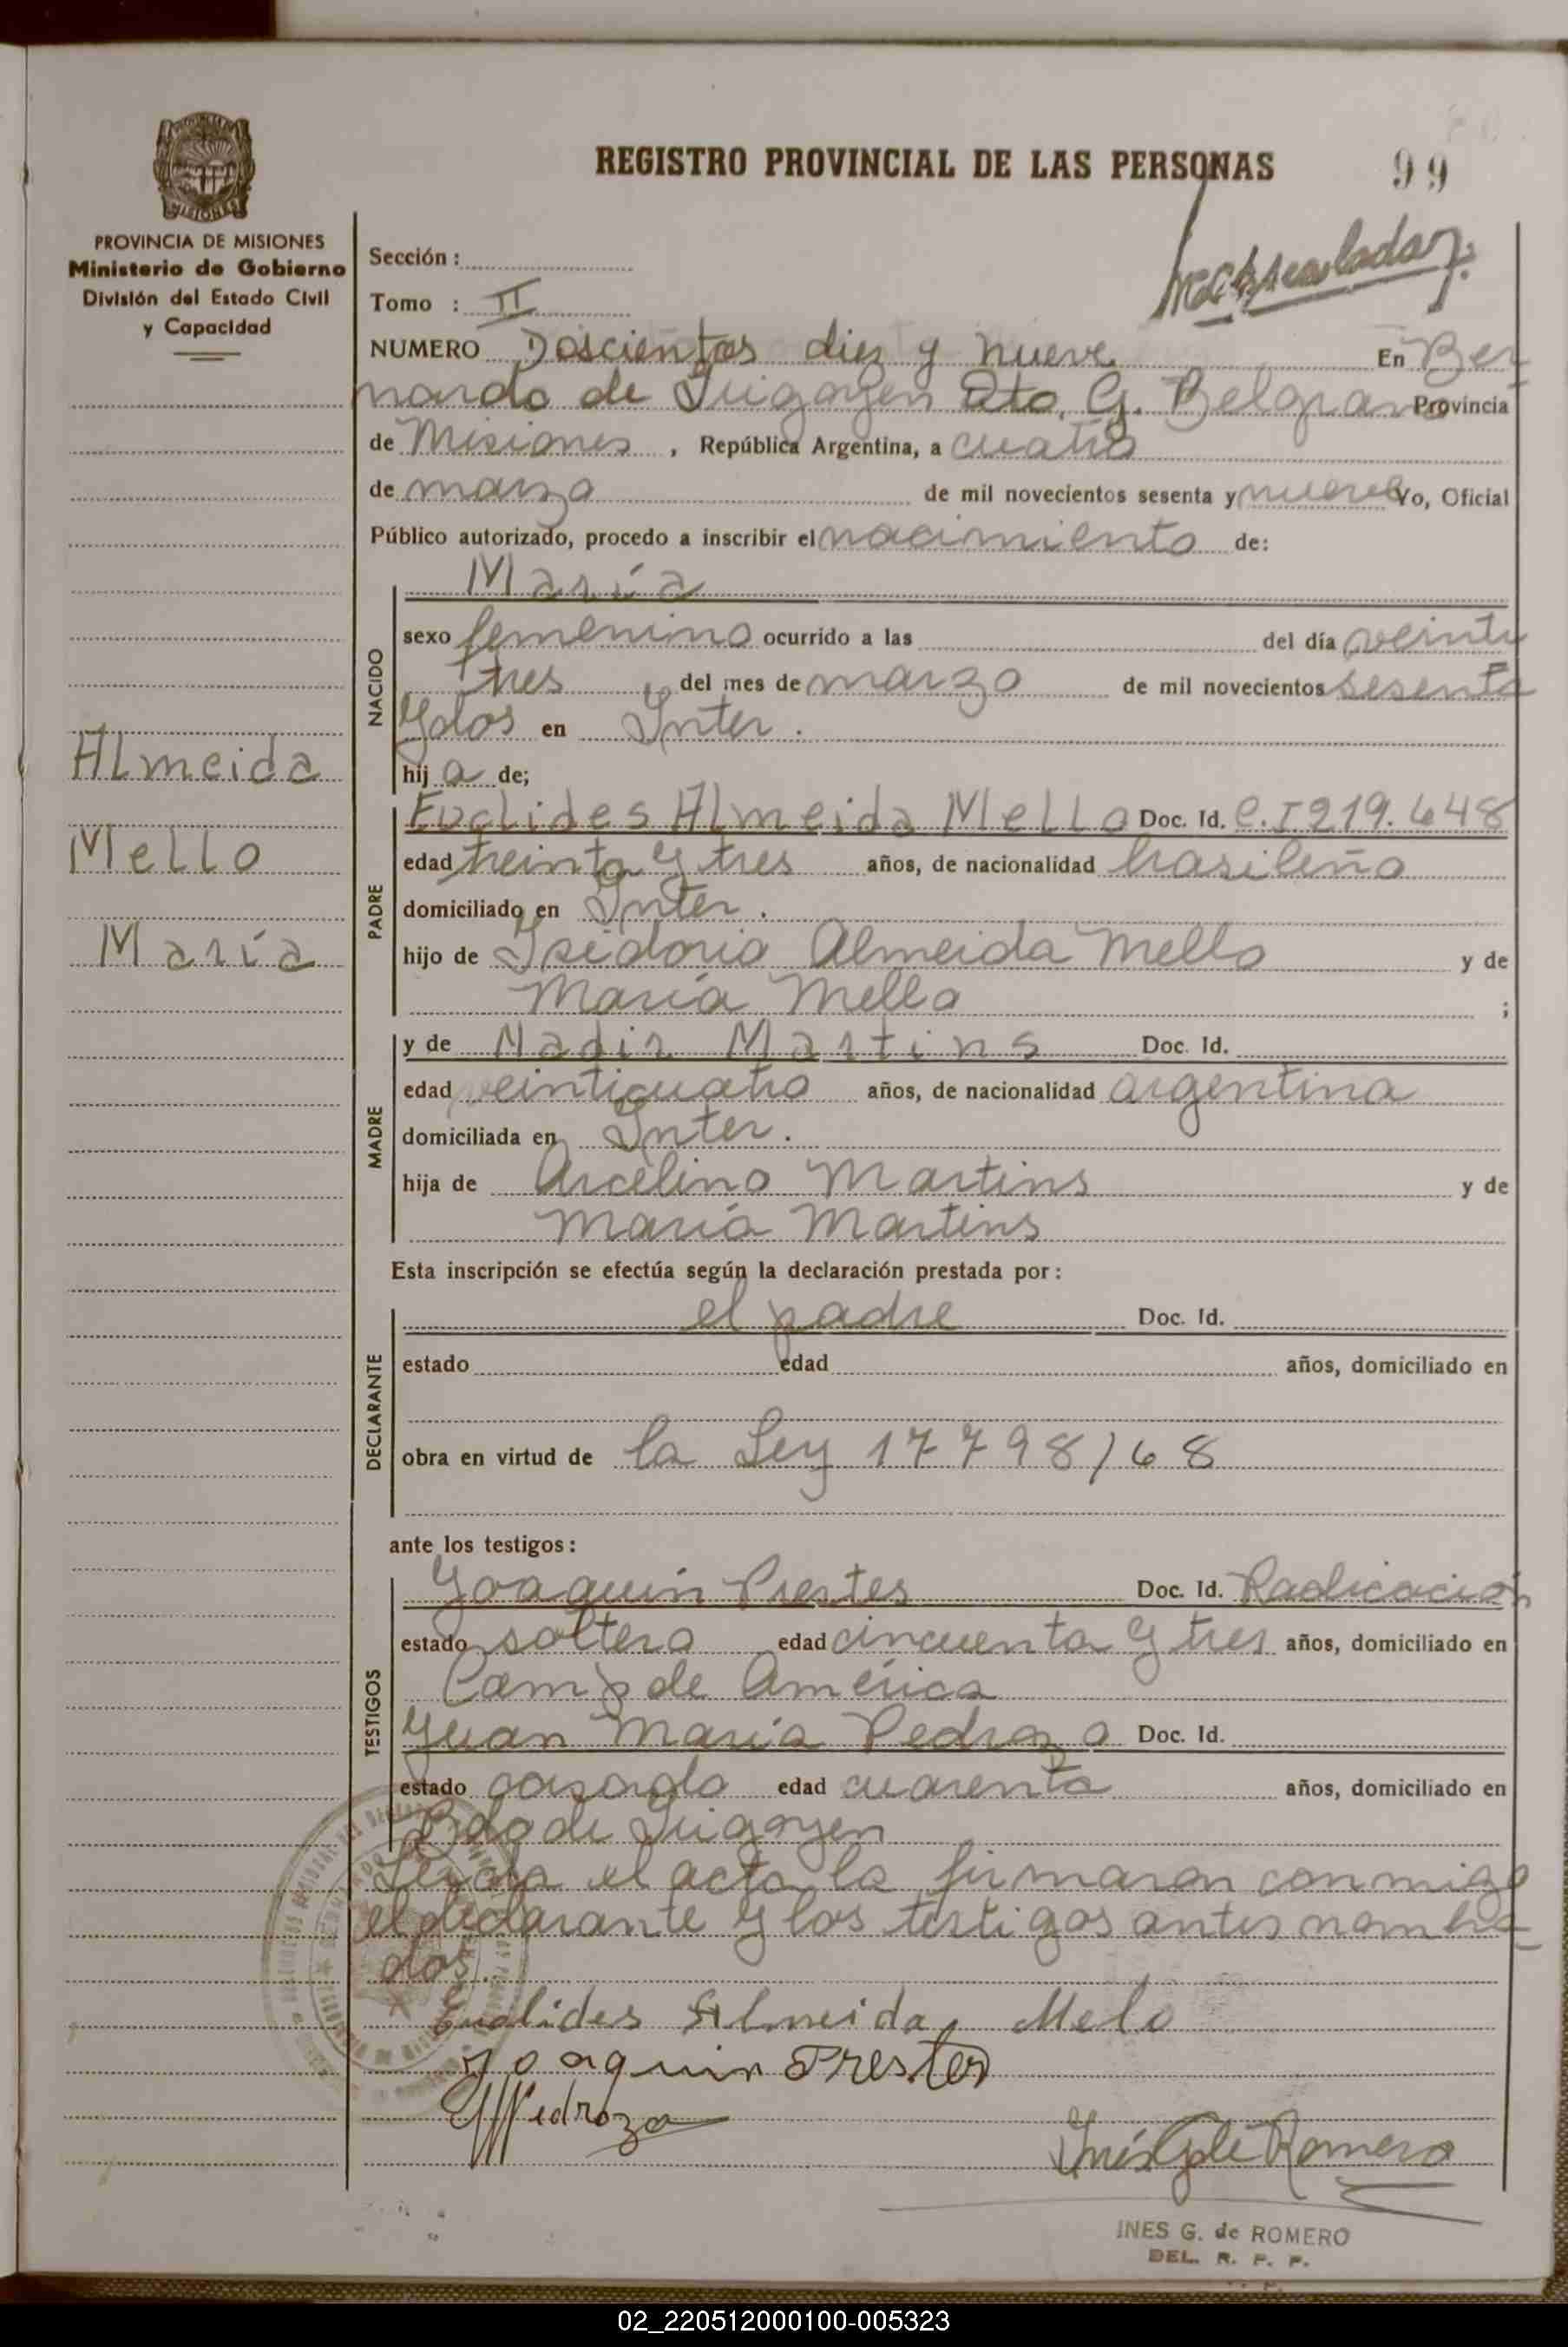 REGISTRO PROVINCIAL DE LAS PERSONAS
99
MISIONES
PROVINCIA DE MISIONES
Ministerio de Gobierno
División del Estado Civil
y Capacidad
Sección :
Tomo : II
NUMERO Doscientos diez y nueve En Ber
nardo de Irigoyen Dto. G. Belgrano Provincia
de Misiones , República Argentina, a cuatro
de marzo de mil novecientos sesenta y nueve Yo, Oficial
Público autorizado, procedo a inscribir el nacimiento de:
NACIDO
María
sexo femenino ocurrido a las del día veinti
tres del mes de marzo de mil novecientos sesenta
y dos en Inter.
hij a de;
Almeida
Mello
María
PADRE
Euclides Almeida Mello Doc. Id. C.I 219.648
edad treinta y tres años, de nacionalidad brasileño
domiciliado en Inter.
hijo de Isidorio Almeida Mello y de
María Mello ;
MADRE
y de Nadir Martins Doc. Id.
edad veinticuatro años, de nacionalidad argentina
domiciliada en Inter.
hija de Arcelino Martins y de
María Martins
Esta inscripción se efectúa según la declaración prestada por :
DECLARANTE
el padre Doc. Id.
estado edad años, domiciliado en
obra en virtud de la Ley 17798/68
ante los testigos :
TESTIGOS
Joaquín Prestes Doc. Id. Radicación
estado soltero edad cincuenta y tres años, domiciliado en
Camp de América
Juan María Pedrozo Doc. Id.
estado casado edad cuarenta años, domiciliado en
Bdo de Irigoyen
Leída el acta la firmaron conmigo
el declarante y los testigos antes nombra
dos.
Euclides Almeida Melo
Joaquin Prestes
Pedrozo
Inés G de Romero
INES G. de ROMERO
DEL. R. P. P.
02_220512000100-005323